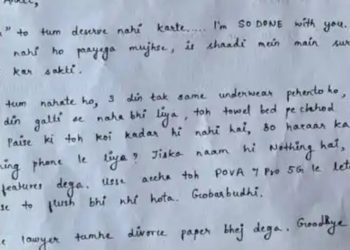 " to tum deserve nahi karte..... I'm SO DONE with you.
nahi ho paayega mujhse, is shaadi mein main sur
kar sakti.
tum nahate ho, 3 din tak same underwear pehente ho,
din galti se naha bhi liya, toh towel bed pe chhod
Paise ki toh koi kadar hi nahi hai, 80 hazaar ka
hing phone le liya? Jiska naam hi Nothing hai,
features dega. Usse accha toh POVA 7 Pro 5G le let
se to flush bhi nhi hota. Gobarbudhi.
e lawyer tumhe divorce paper bhej dega. Goodbye